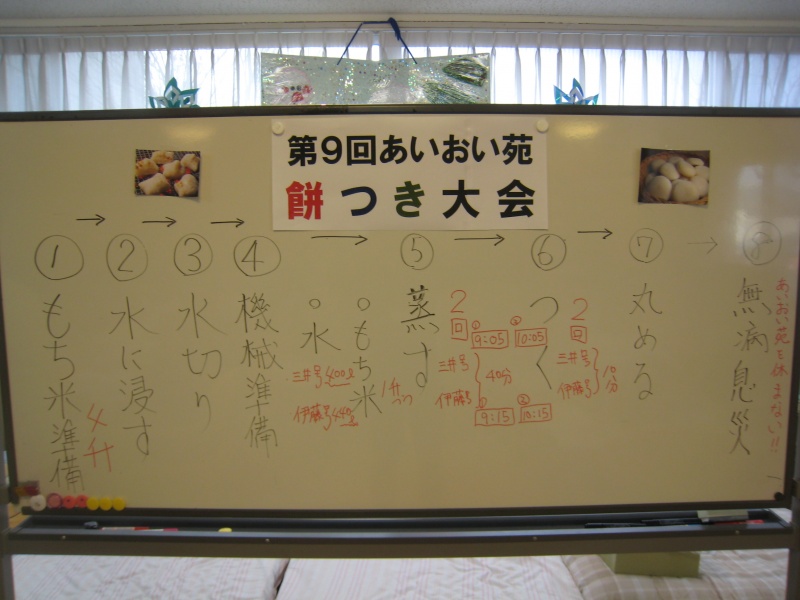 第9回あいおい苑
餅つき大会
→ → → → → → →
① ② ③ ④ ⑤ ⑥ ⑦ ⑧
もち米準備
4升
水に浸す
水切り
機械準備
○水
三井号 400g
伊藤号 440g
○もち米
1升
づつ
蒸す
2回
① 9:05 ② 10:05
三井号
伊藤号
40分
① 9:15 ② 10:15
つく
2回
三井号
伊藤号
10分
丸める
無病息災
あいおい苑を休まない!!